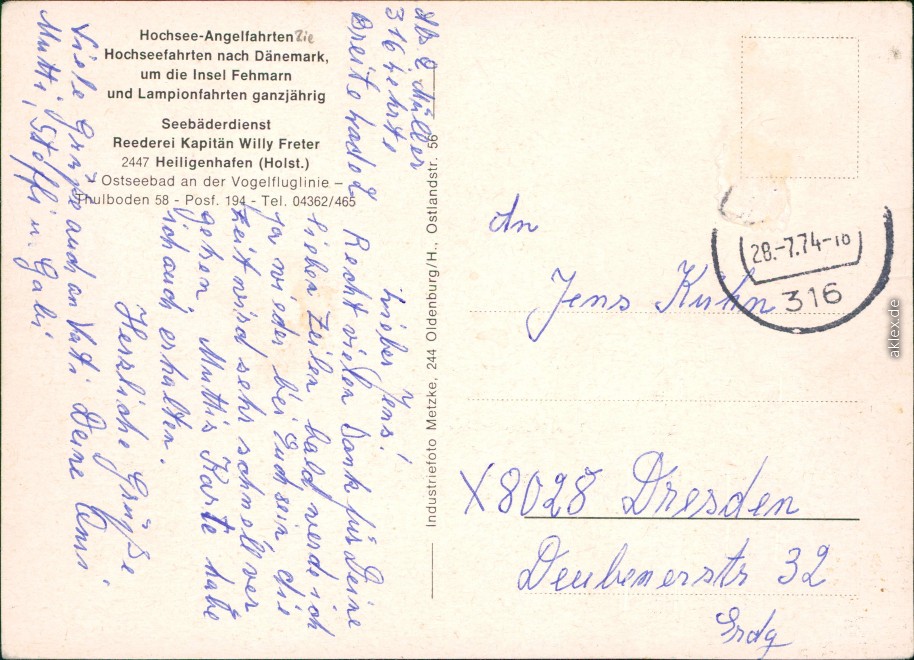 Hochsee-Angelfahrten
Hochseefahrten nach Dänemark,
um die Insel Fehmarn
und Lampionfahrten ganzjährig
Seebäderdienst
Reederei Kapitän Willy Freter
2447 Heiligenhafen (Holst.)
– Ostseebad an der Vogelfluglinie –
Thulboden 58 - Posf. 194 - Tel. 04362/465
Abs. E. Müller
316 Lehrte
Breite
Lieber Jens!
Recht vielen Dank für Deine
lieben Zeilen bald werde ich
ja wieder bei Euch sein die
Zeit wird sehr schnell ver
gehen Muttis Karte habe
ich auch erhalten.
Herzliche Grüße
Deine Omi.
Viele Grüße auch an Vati
Mutti, Stöffi u. Gabi
Industriefoto Metzke, 244 Oldenburg/H., Ostlandstr. 56
28.-7.74-18
316
An
Jens Kühn
X8028 Dresden
Deubenerstr 32
Erdg
aklex.de